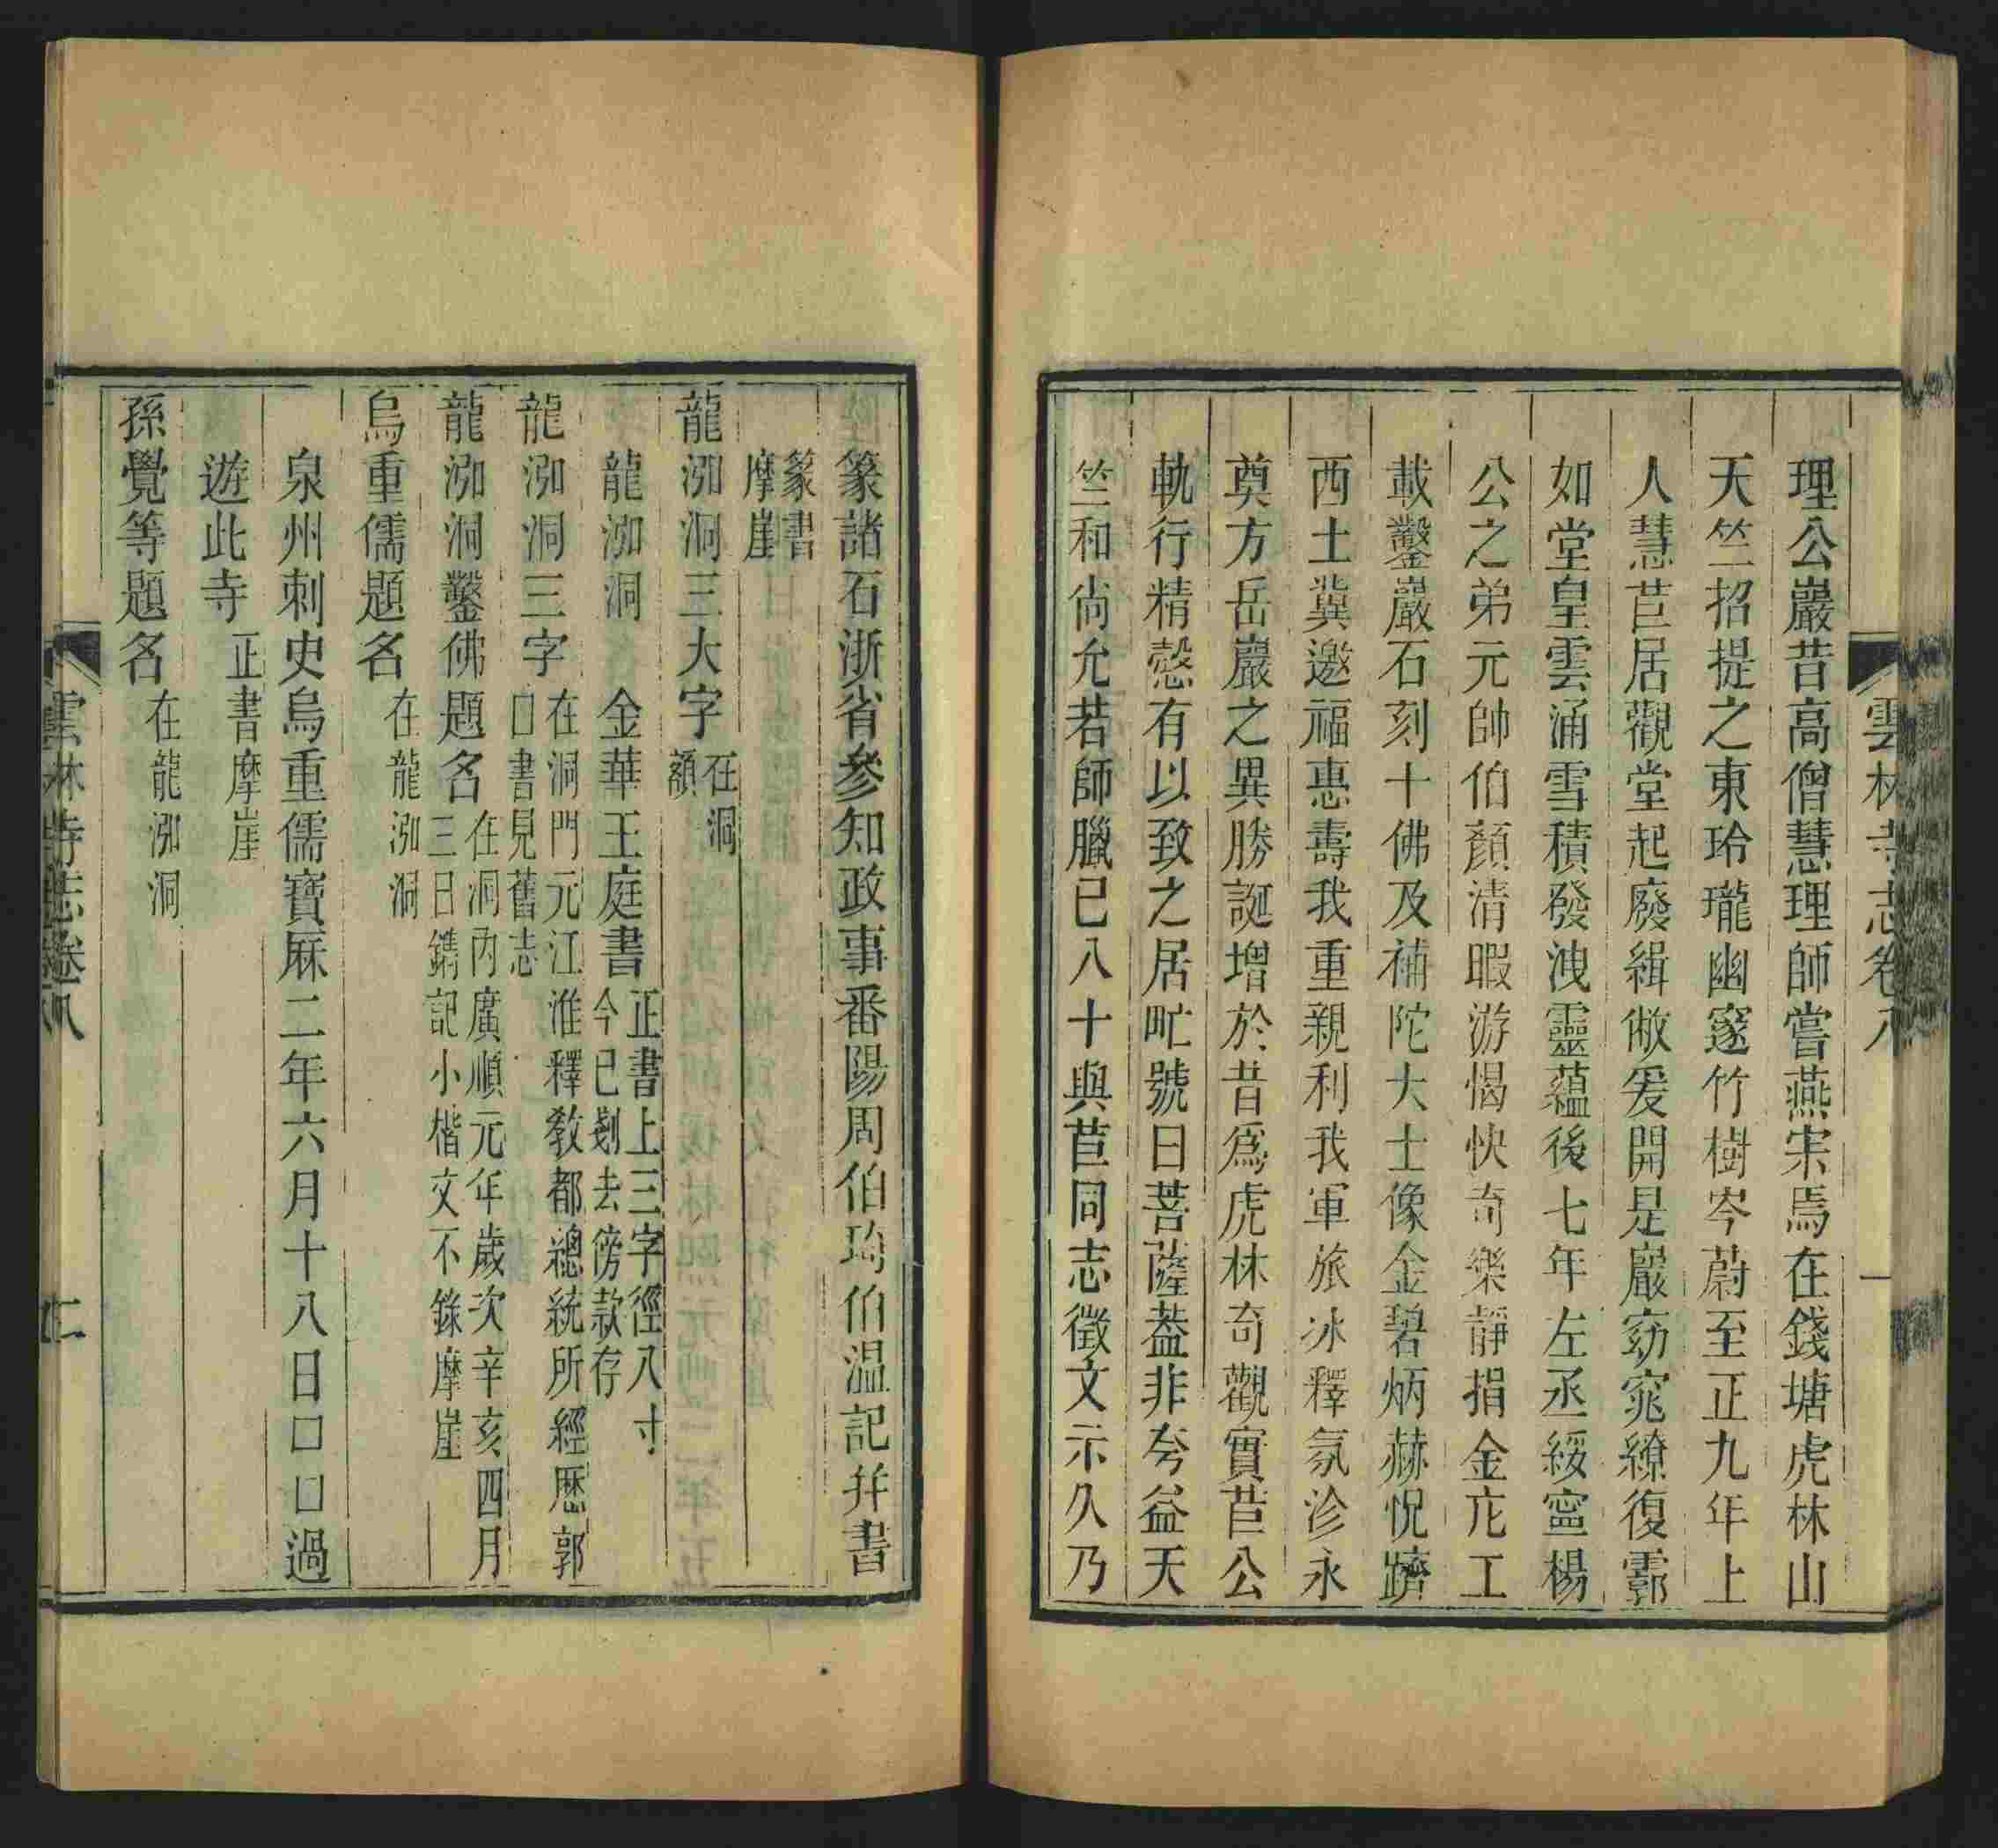 雲林寺志卷八
一
理公巖昔高僧慧理師嘗燕宋焉在錢塘虎林山
天竺招提之東玲瓏幽窓竹樹岑蔚至正九年上
人慧苣居觀堂起廢緝敝爰開是巖窈窕繚復霩
如堂皇雲涌雪積發洩靈蘊後七年左丞綏寍楊
公之弟元帥伯顏清暇游憩快奇樂靜捐金庀工
載鑿巖石刻十佛及補陀大士像金碧炳赫怳躋
西土冀邀福惠壽我重親利我軍旅冰釋氛沴永
奠方岳巖之異勝誕增於昔爲虎林奇觀實苣公
軌行精慤有以致之居甿號曰菩薩葢非夸益天
竺和尙允若師臘已八十與苣同志徵文示久乃
篆諸石浙省參知政事番陽周伯琦伯溫記并書
篆書
摩崖
龍泓洞三大字 在洞
額
龍泓洞 金華王庭書 正書上三字徑八寸
今已剗去傍款存
龍泓洞三字 在洞門元江淮釋敎都總統所經歷郭
□書見舊志
龍泓洞鑿佛題名 在洞內廣順元年歲次辛亥四月
三日鐫記小楷文不錄摩崖
烏重儒題名 在龍泓洞
泉州刺史烏重儒寶厤二年六月十八日□□過
遊此寺 正書摩崖
孫覺等題名 在龍泓洞
雲林寺志卷八